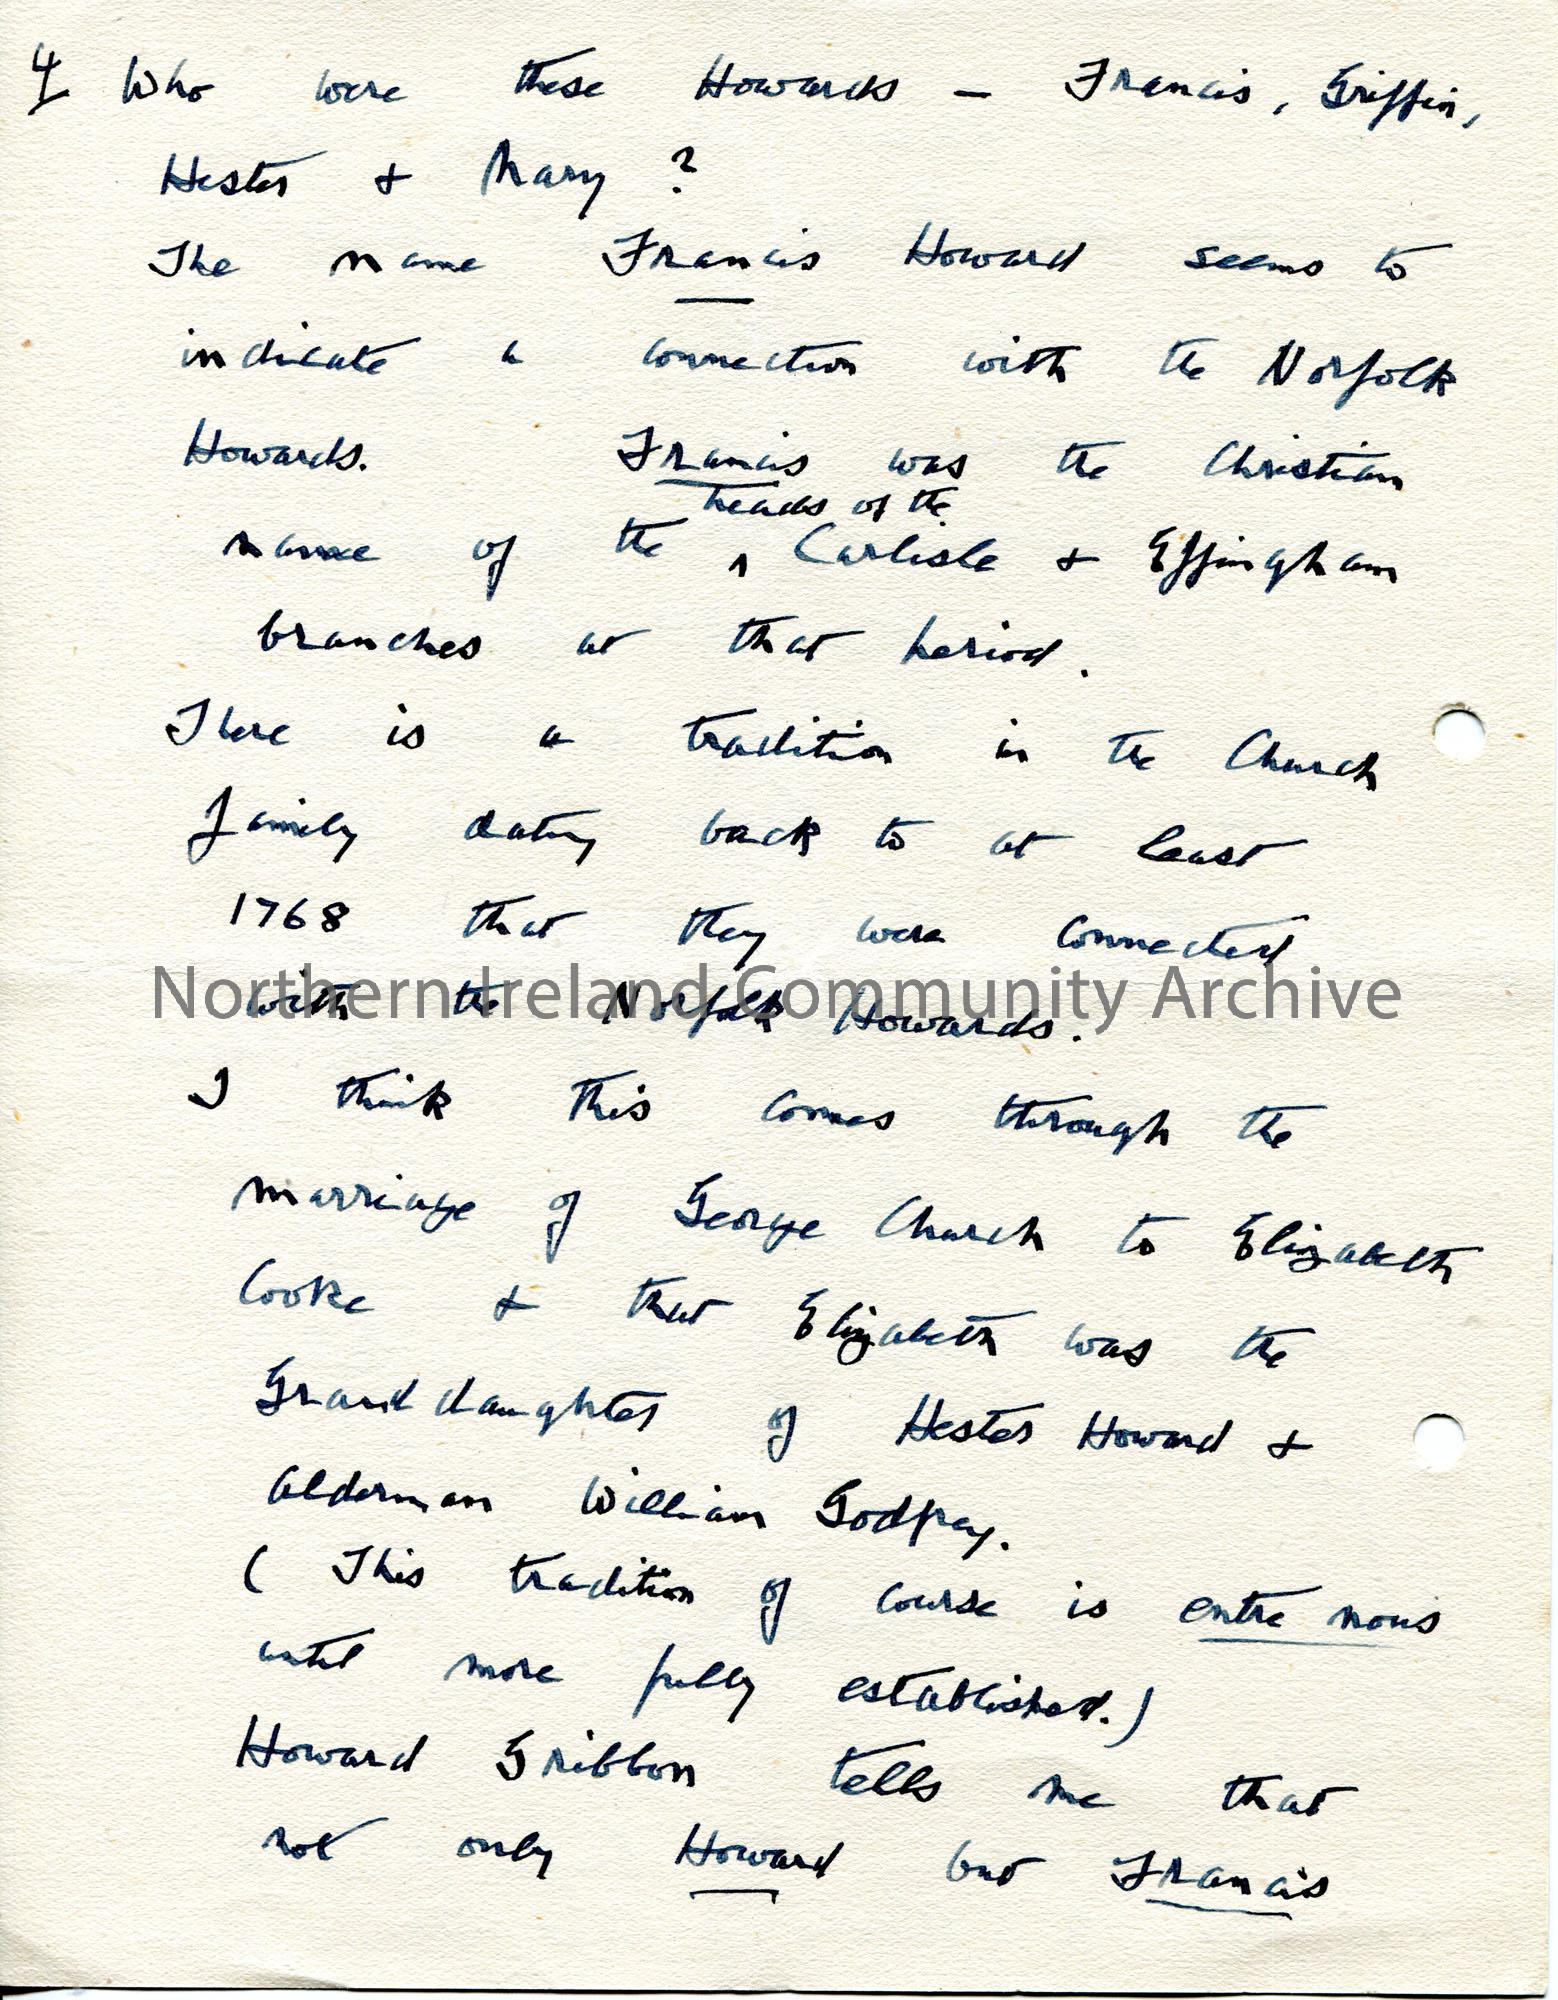 4 Who were these Howards – Francis, Griffin,
Hester & Mary ?
The name Francis Howard seems to
indicate a connection with the Norfolk
Howards. Francis was the Christian
heads of the
name of the ‸ Carlisle & Effingham
branches at that period.
There is a tradition in the Church
family dating back to at least
1768 that they were connected
with the Norfolk Howards.
Northern Ireland Community Archive
I think this comes through the
marriage of George Church to Elizabeth
Cooke & that Elizabeth was the
Grand daughter of Hester Howard &
Alderman William Godfrey.
( This tradition of course is entre nous
until more fully established.)
Howard Gribbon tells me that
not only Howard but Francis